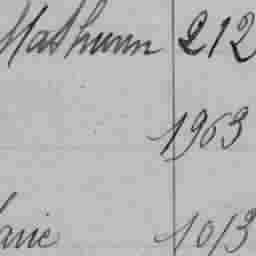 Mathurin 212
1963
1013